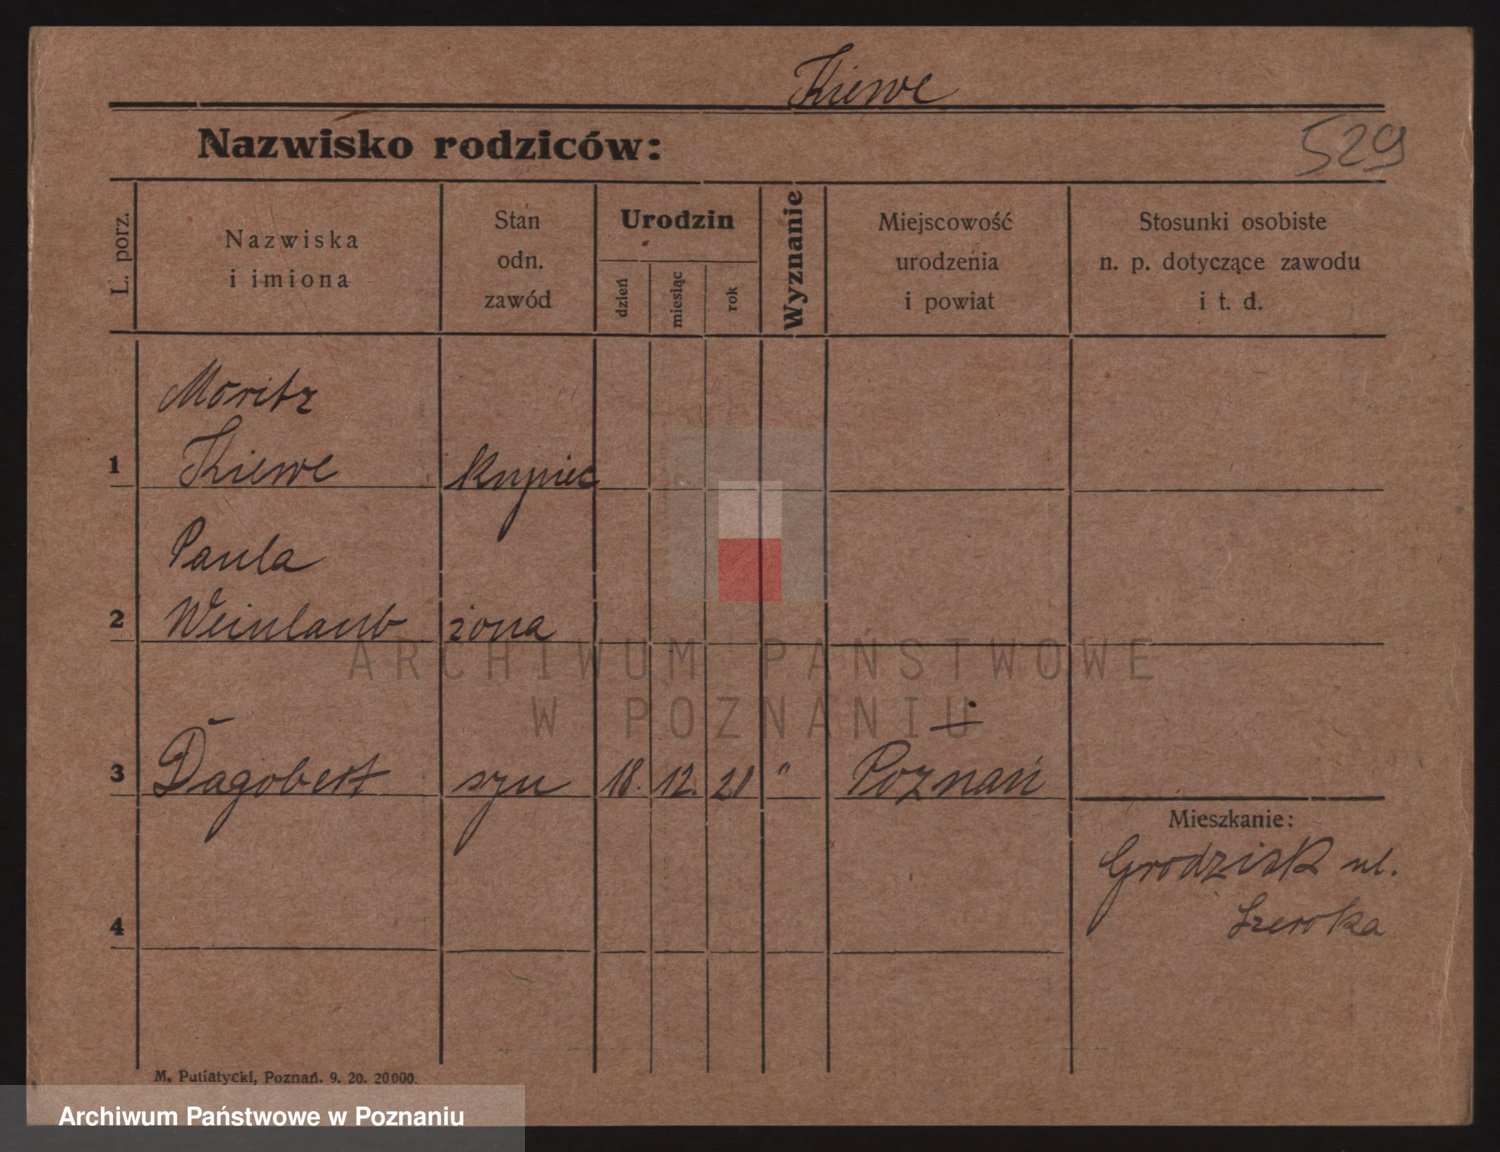 Kiewe
Nazwisko rodziców:
529
L. porz.
Nazwiska
i imiona
Stan
odn.
zawód
Urodzin
dzień
miesiąc
rok
Wyznanie
Miejscowość
urodzenia
i powiat
Stosunki osobiste
n. p. dotyczące zawodu
i t. d.
Moritz
1 Kiewe kupiec
Paula
2 Weinlaub żona
ARCHIWUM PAŃSTWOWE
W POZNANIU
3 Dagobert syn 18. 12. 21 " Poznań
Mieszkanie:
Grodzisk ul.
Szeroka
4
M. Putiatycki, Poznań. 9. 20. 20000.
Archiwum Państwowe w Poznaniu